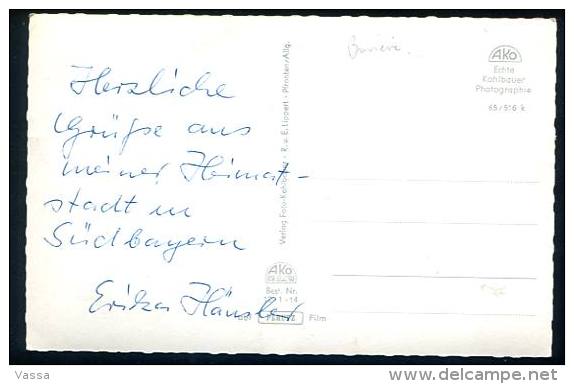 Herzliche
Grüße aus
meiner Heimat-
stadt in
Südbayern
Erika Hänsler
Verlag Foto-Kohlbauer - R. u. E. Lippert - Pfronten/Allg.
AKo
Best. Nr.
Film
Bavière.
AKo
Echte
Kohlbauer
Photographie
65/516 k
Vassa
delcampe.net